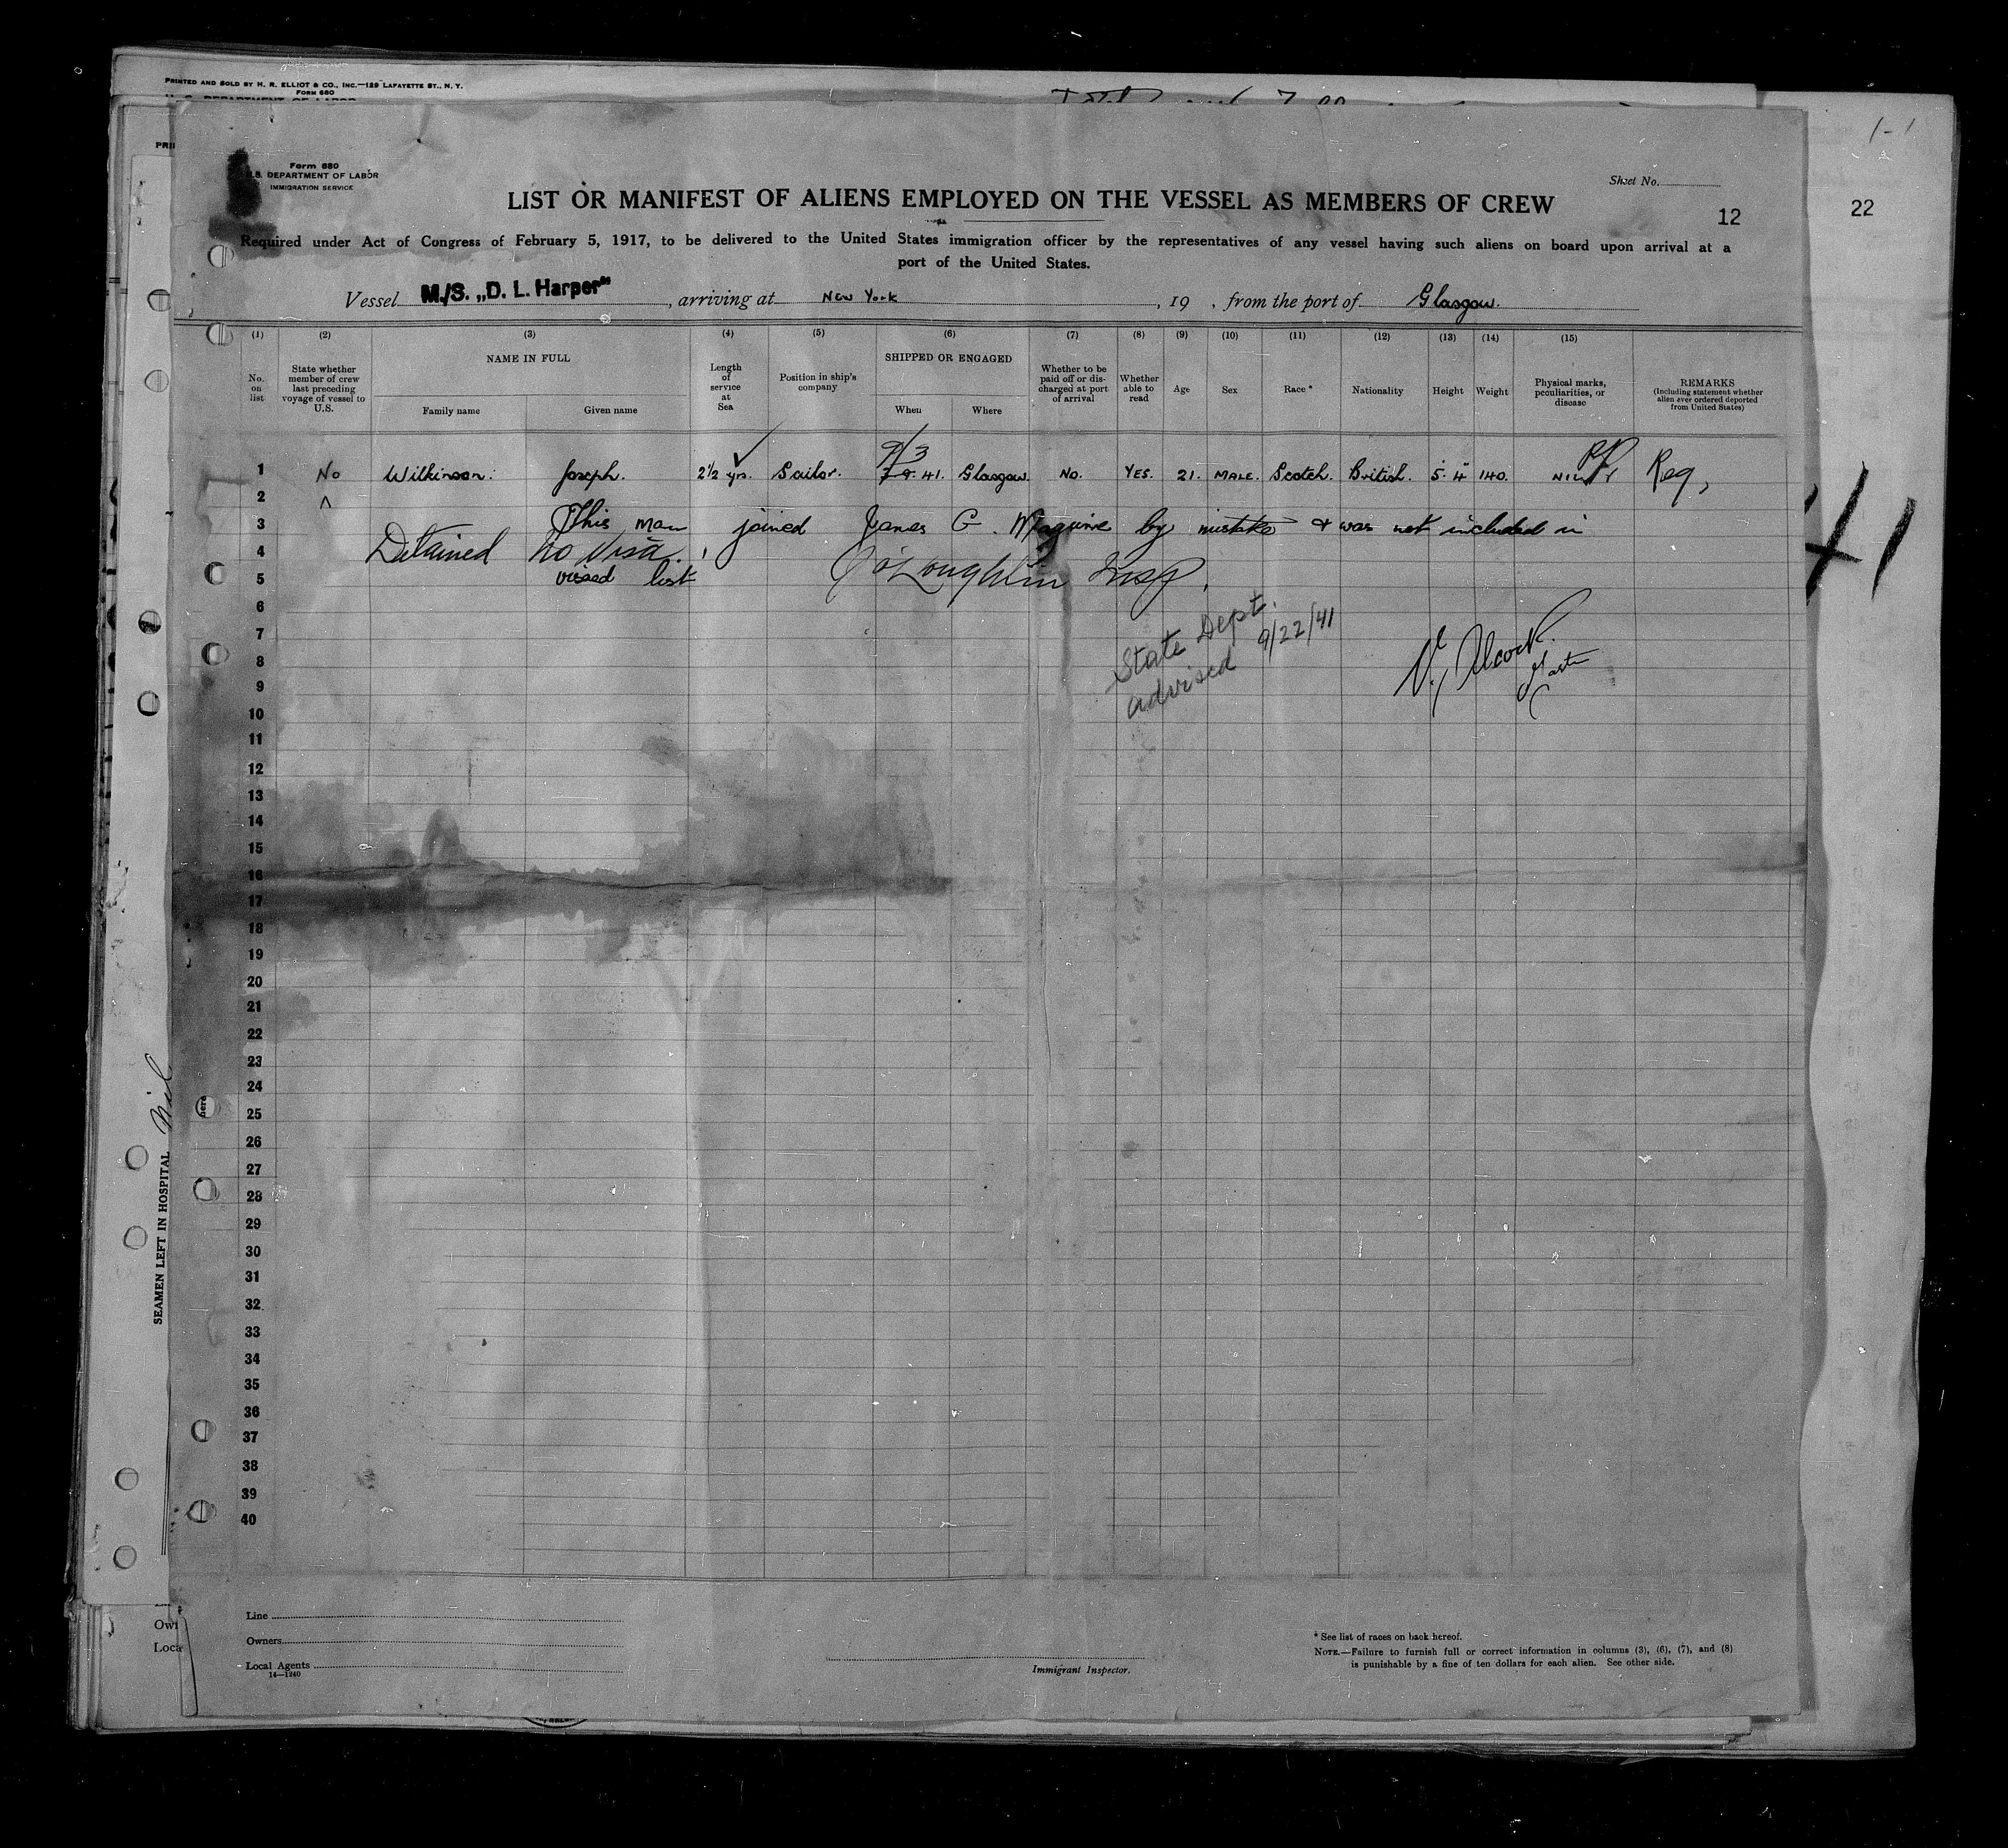 PRINTED AND SOLD BY H. R. ELLIOT & CO., INC.—129 LAFAYETTE ST., N. Y.
FORM 680
1-1
PRI
Form 680
U.S. DEPARTMENT OF LABOR
IMMIGRATION SERVICE
Sheet No.
LIST OR MANIFEST OF ALIENS EMPLOYED ON THE VESSEL AS MEMBERS OF CREW
12
22
Required under Act of Congress of February 5, 1917, to be delivered to the United States immigration officer by the representatives of any vessel having such aliens on board upon arrival at a
port of the United States.
Vessel M./S. „D. L. Harper", arriving at New York, 19 , from the port of Glasgow.
(1) (2) (3) (4) (5) (6) (7) (8) (9) (10) (11) (12) (13) (14) (15)
No. on list
State whether member of crew last preceding voyage of vessel to U.S.
NAME IN FULL
Family name Given name
Length of service at Sea
Position in ship's company
SHIPPED OR ENGAGED
When Where
Whether to be paid off or discharged at port of arrival
Whether able to read
Age
Sex
Race *
Nationality
Height
Weight
Physical marks, peculiarities, or disease
REMARKS
(Including statement whether alien ever ordered deported from United States)
9/3
1 No Wilkinson. Joseph. 2½ yrs. Sailor. 9. 41. Glasgow. No. YES. 21. MALE. Scotch. British. 5. 4" 140. NIL Reg,
2
3 This man joined James G. Maguire by mistake & was not included in
4 Detained no Visa.
5 visaed list J O'Loughlin Insp.
6
State Dept.
advised 9/22/41
7
8
Alcock.
Master
9
10
11
12
13
14
15
16
17
18
19
20
21
22
23
24
25
26
27
28
29
30
31
32
33
34
35
36
37
38
39
40
41
SEAMEN LEFT IN HOSPITAL Nil
here
Line
Owners
Local Agents
14—1240
Immigrant Inspector.
* See list of races on back hereof.
NOTE.—Failure to furnish full or correct information in columns (3), (6), (7), and (8)
is punishable by a fine of ten dollars for each alien. See other side.
Own
Loca